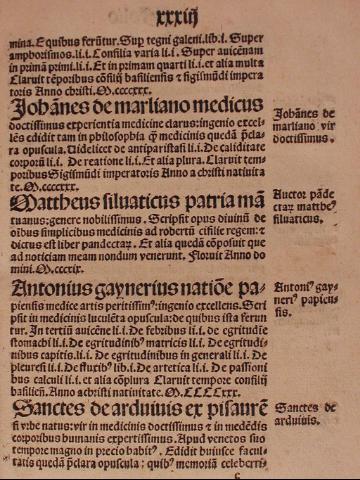 xxxiij
mina. Equibus ferūtur. Sup tegni galeni.lib.i. Super
amphorismos.li.i. Consilia varia li.i. Super auicēnam
in primā primi.li.i. Et in primam quarti li.i. et alia multa
Claruit tēporibus cōsilij basiliensis & sigismūdi impera
toris Anno christi.M.ccccxxx.
Johānes de marliano medicus
doctissimus experientia medicine clarus: ingenio excel-
lēs edidit tam in philosophia q̄ medicinis quedā p̄cla
ra opuscula. Videlicet de antiparistasi li.i. De caliditate
corporū li.i. De reatione li.i. Et alia plura. Claruit tem-
poribus Sigismūdi imperatoris Anno a christi natiuita
te. M.ccccxxx.
Johānes de
marliano vir
doctissimus.
Mattheus siluaticus patria mā
tuanus: genere nobilissimus. Scripsit opus diuinū de
oībus simplicibus medicinis ad robertū cisilie regem: &
dictus est liber pandectaꝝ. Et alia quedā cōposuit que
ad noticiam meam nondum venerunt. Floruit Anno do
mini. M.ccccix.
Auctor pāde
ctaꝝ mattheꝰ
siluaticus.
Antonius gaynerius natiōe pa-
piensis medice artis peritissimꝰ: ingenio excellens. Scri
psit in medicinis luculēta opuscula: de quibus ista ferun
tur. In tertiū auicēne li.i. De febribus li.i. de egritudīe
stomachi li.i. De egritudinibꝰ matricis li.i. De egritudi-
nibus capitis.li.i. De egritudinibus in generali li.i. De
pleuresi li.i. De fluxibꝰ lib.i. De artetica li.i. De passioni
bus calculi li.i. et alia cōplura Claruit tempore consilij
basilien. Anno a christi natiuitate. M.CCCCxxx.
Antoniꝰ gay-
neriꝰ papien-
sis.
Sanctes de arduiuis ex pisaurē
si vrbe natus: vir in medicinis doctissimus & in medēdis
corporibus humanis expertissimus. Apud venetos suo
tempore magno in precio habitꝰ. Edidit huiusce facul-
tatis quedā p̄clara opuscula: quibꝰ memoriā celeberri-
Sanctes de
arduiuis.
c